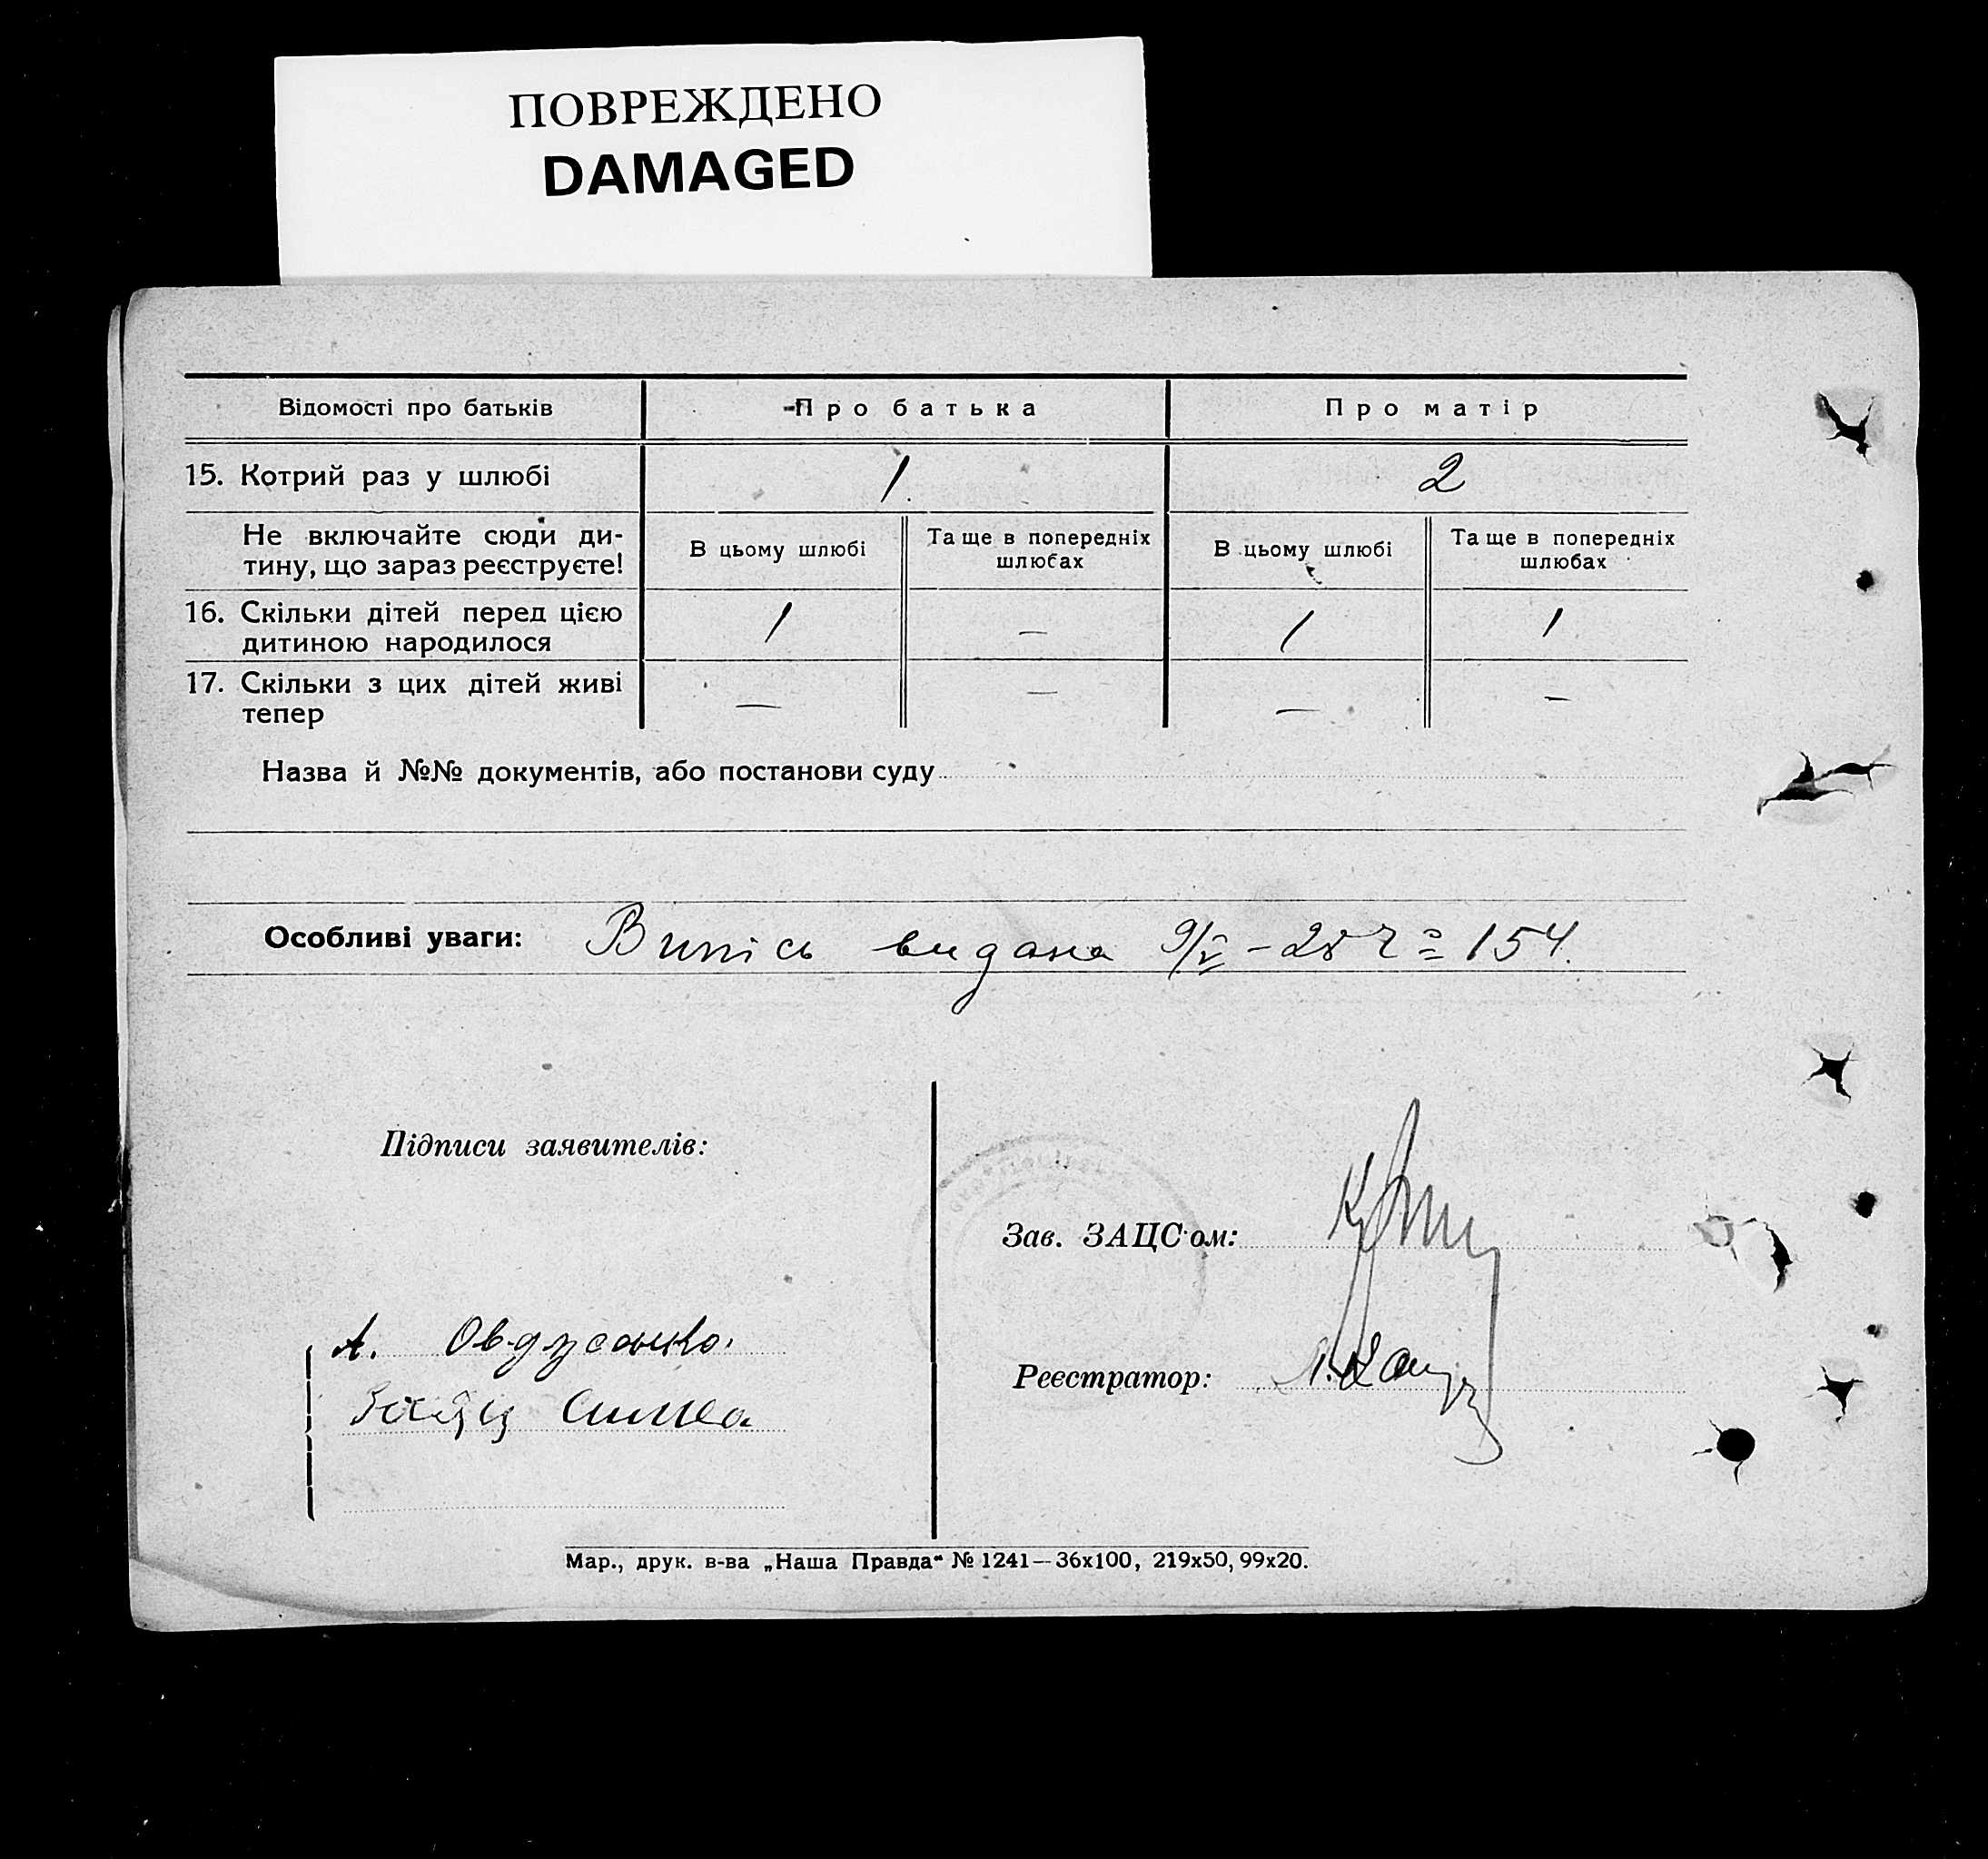 ПОВРЕЖДЕНО
DAMAGED
Відомості про батьків Про батька Про матір
15. Котрий раз у шлюбі 1 2
Не включайте сюди ди-
тину, що зараз реєструєте!
В цьому шлюбі Та ще в попередніх шлюбах В цьому шлюбі Та ще в попередніх шлюбах
16. Скільки дітей перед цією
дитиною народилося 1 — 1 1
17. Скільки з цих дітей живі
тепер — — — —
Назва й №№ документів, або постанови суду
Особливі уваги: Випісь видана 9/V – 28 154.
Підписи заявителів:
Зав. ЗАЦС'ом:
А.
Реєстратор:
Мар., друк. в-ва „Наша Правда“ № 1241—36x100, 219x50, 99x20.